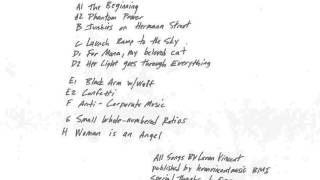 A1 The Beginning
A2 Phantom Power
B Junkies on Hermann Street
C Launch Ramp to the Sky
D1 For Mona, my beloved cat
D2 Her Light goes through Everything
E1 Black Arm w/Wolf
E2 Confetti
F Anti-Corporate Music
G Small Whole-numbered Ratios
H Woman is an Angel
All Songs By Loren Vincent
published by BMI
special thanks